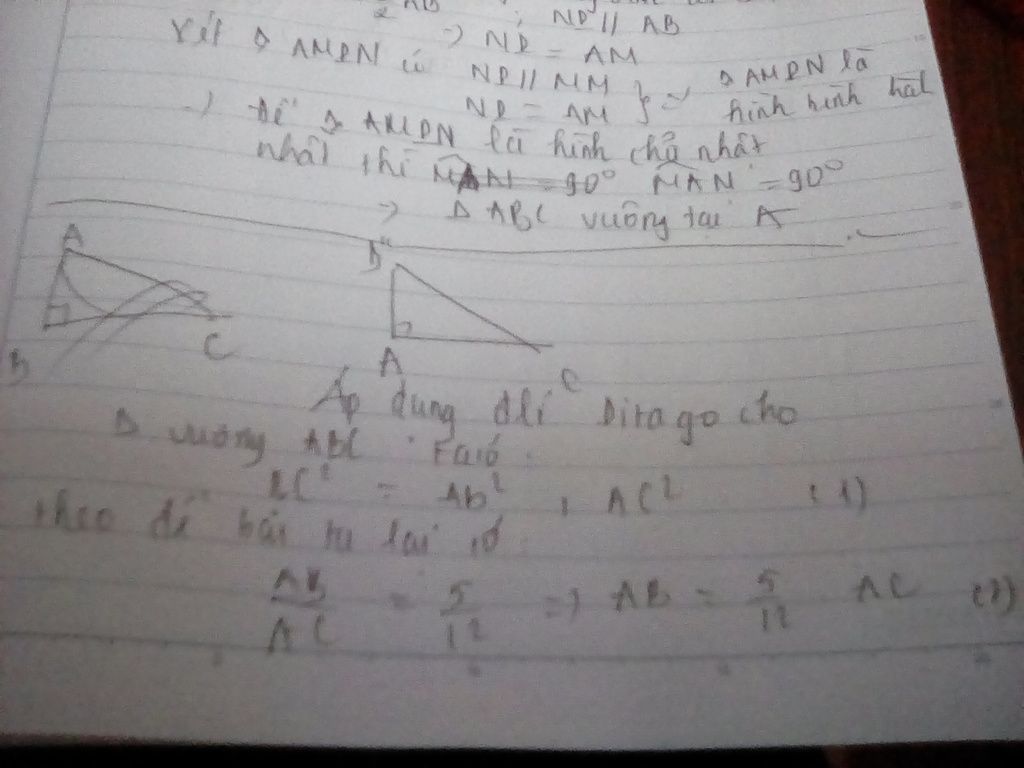 AB
NP // AB
Xét ◇ AMPN có
=> NP = AM
NP // MM
NP = AM } => ◇ AMPN là
hình hình hàl
-> Để ◇ AMPN là hình chữ nhất
nhất thì MAN = 90° MAN = 90°
=> Δ ABC vuông tại A
A
B
C
B
A
C
Áp dung đlí Pitago cho
Δ vuông ABC Ta có
BC² = AB² + AC² (1)
theo đề bài ta lại có
AB/AC = 5/12 => AB = 5/12 AC (2)